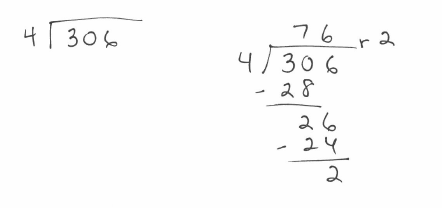 4 306
76 r 2
4 306
- 28
26
- 24
2